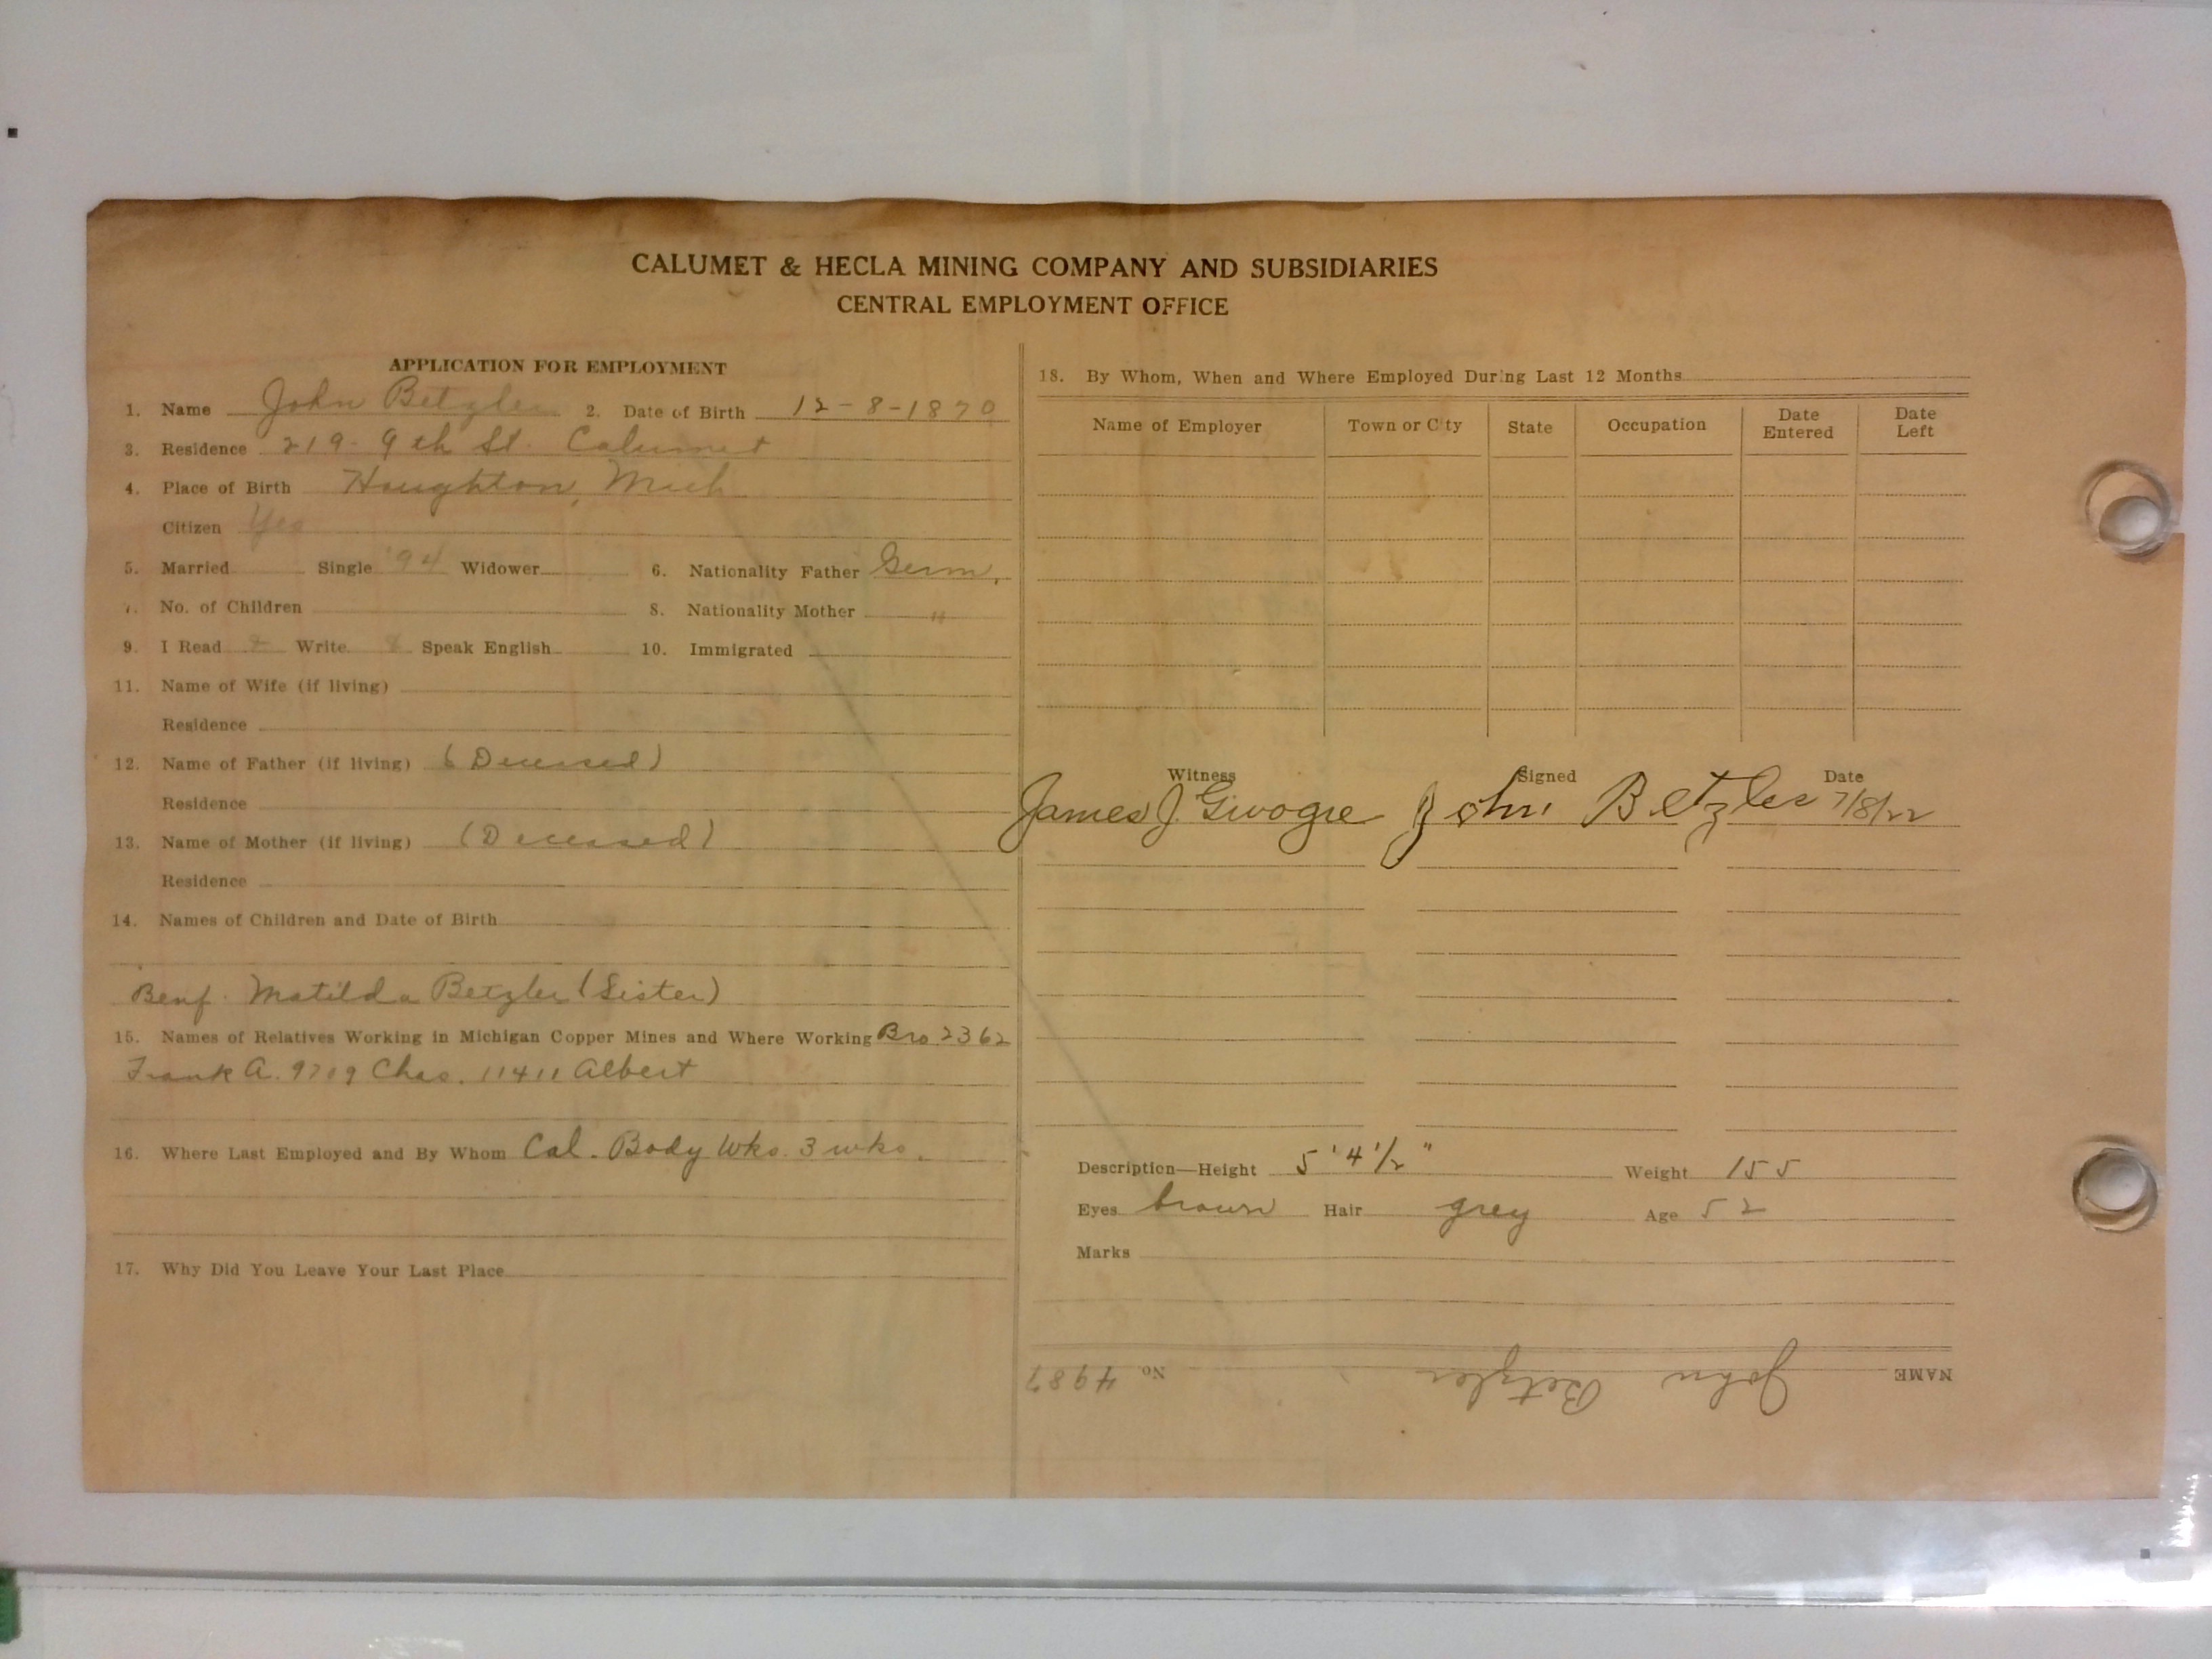 CALUMET & HECLA MINING COMPANY AND SUBSIDIARIES
CENTRAL EMPLOYMENT OFFICE
APPLICATION FOR EMPLOYMENT
1. Name John Betzler 2. Date of Birth 12-8-1870
3. Residence 219-9th St. Calumet
4. Place of Birth Houghton, Mich
Citizen Yes
5. Married Single '94 Widower 6. Nationality Father Germ.
7. No. of Children 8. Nationality Mother "
9. I Read Write Speak English 10. Immigrated
11. Name of Wife (if living)
Residence
12. Name of Father (if living) (Deceased)
Residence
13. Name of Mother (if living) (Deceased)
Residence
14. Names of Children and Date of Birth
Benf. Matilda Betzler (Sister)
15. Names of Relatives Working in Michigan Copper Mines and Where Working Bro 2362
Frank A. 9709 Chas. 11411 Albert
16. Where Last Employed and By Whom Cal. Body Wks. 3 wks.
17. Why Did You Leave Your Last Place
18. By Whom, When and Where Employed During Last 12 Months
Name of Employer Town or City State Occupation Date Entered Date Left
Witness Signed Date
James J. John Betzler 7/8/22
Description—Height 5' 4 1/2" Weight 155
Eyes brown Hair grey Age 52
Marks
NAME John Betzler No 4987